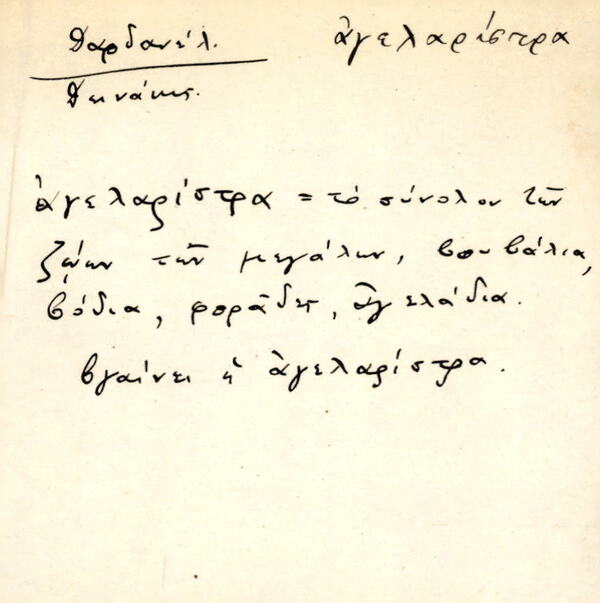 Δαρδανέλ. ἀγελαρίστρα
ἀγελαρίστρα = τὸ σύνολον τῶν
ζῴων τῶν μεγάλων, βουβάλια,
βόδια, φοράδες, ἀγελάδια.
βγαίνει ἡ ἀγελαρίστρα.